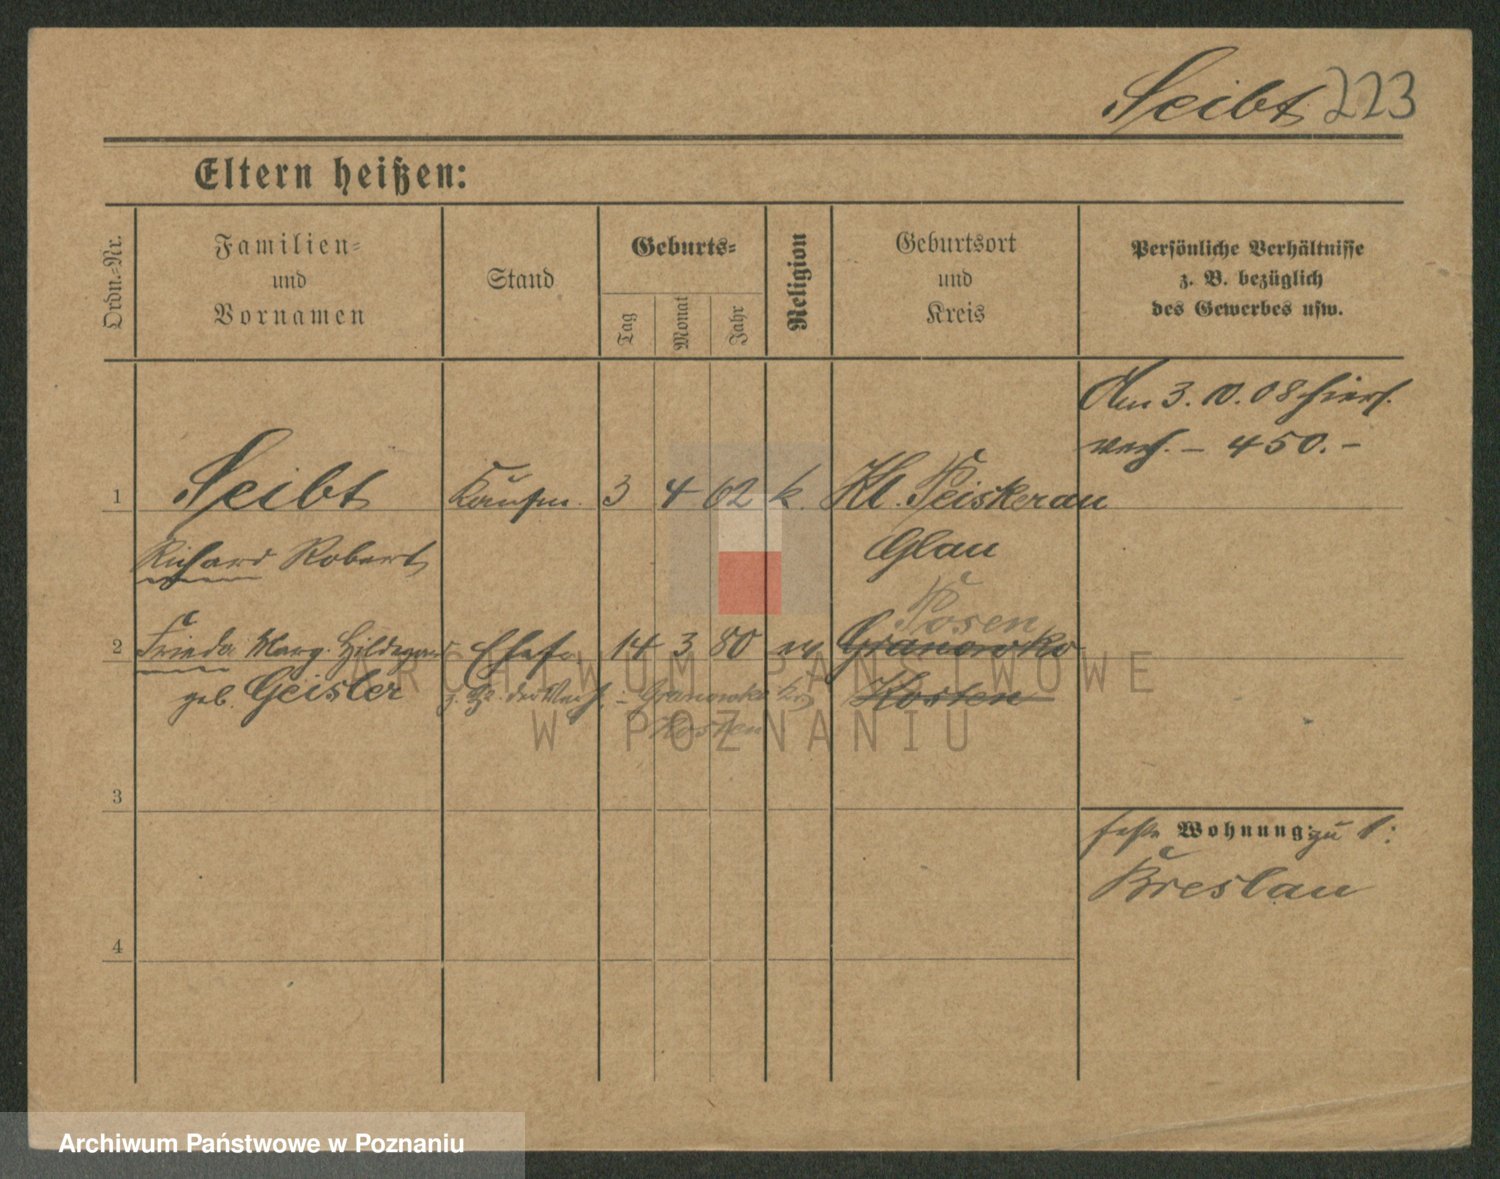 Seibt 223
Eltern heißen:
Ordn.=Nr.
Familien=
und
Vornamen
Stand
Geburts=
Tag
Monat
Jahr
Religion
Geburtsort
und
Kreis
Persönliche Verhältnisse
z. B. bezüglich
des Gewerbes usw.
Am 3. 10. 08 hiers.
verh. – 450.–
1 Seibt Kaufm. 3 4 62 k. Kl. Peiskerau
Richard Robert Ohlau
Posen
2 Frieda Marg. Hildegard Ehefr. 14 3 80 ev Granowko
geb. Geisler z. Zt. der Verh. Granowko Krs Kosten
Kosten
3
feste Wohnung zu 1:
Breslau
4
ARCHIWUM PAŃSTWOWE
W POZNANIU
Archiwum Państwowe w Poznaniu